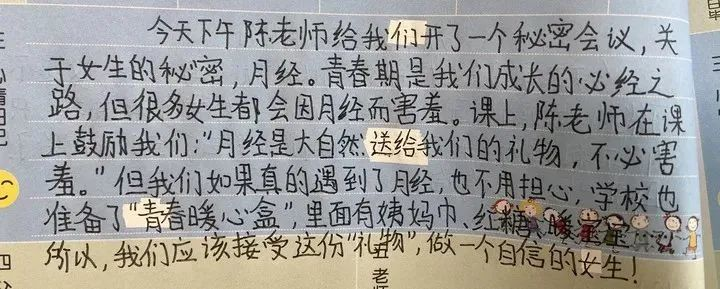 今天下午陈老师给我们开了一个秘密会议,关
于女生的秘密,月经。青春期是我们成长的必经之
路,但很多女生都会因月经而害羞。课上,陈老师在课
上鼓励我们:"月经是大自然送给我们的礼物,不必害
羞。"但我们如果真的遇到了月经,也不用担心,学校也
准备了"青春暖心盒",里面有姨妈巾、红糖、暖宝宝……
所以,我们应该接受这份"礼物",做一个自信的女生!